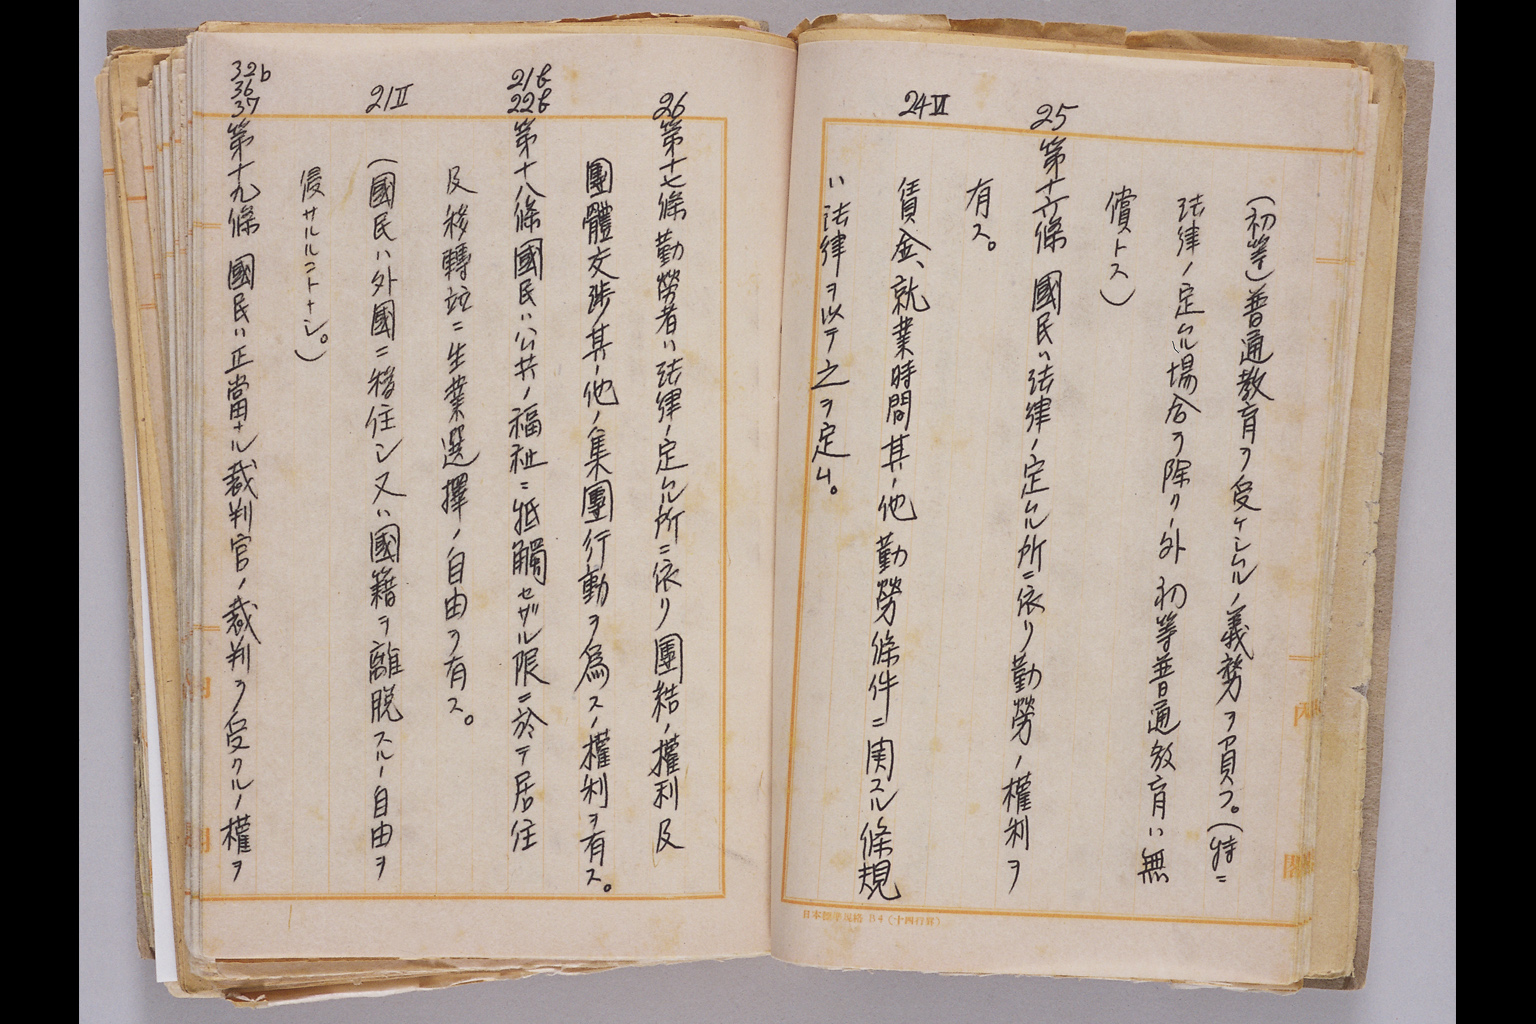 (初等)普通教育ヲ受ケシムルノ義務ヲ負フ。(特ニ
法律ノ定ムル場合ヲ除クノ外初等普通教育ハ無
償トス)
25
第十六條 國民ハ法律ノ定ムル所ニ依リ勤勞ノ權利ヲ
有ス。
24Ⅵ
賃金、就業時間其ノ他勤勞條件ニ関スル條規
ハ法律ヲ以テ之ヲ定ム。
日本標準規格B4(十四行罫)
26
第十七條 勤勞者ハ法律ノ定ムル所ニ依リ團結ノ權利及
團體交渉其ノ他ノ集團行動ヲ爲スノ權利ヲ有ス。
21b
22b
第十八條 國民ハ公共ノ福祉ニ抵觸セザル限ニ於テ居住
及移轉竝ニ生業選擇ノ自由ヲ有ス。
21Ⅱ
(國民ハ外國ニ移住シ又ハ國籍ヲ離脱スルノ自由ヲ
侵サルルコトナシ。)
32b
36
37
第十九條 國民ハ正當ナル裁判官ノ裁判ヲ受クルノ權ヲ